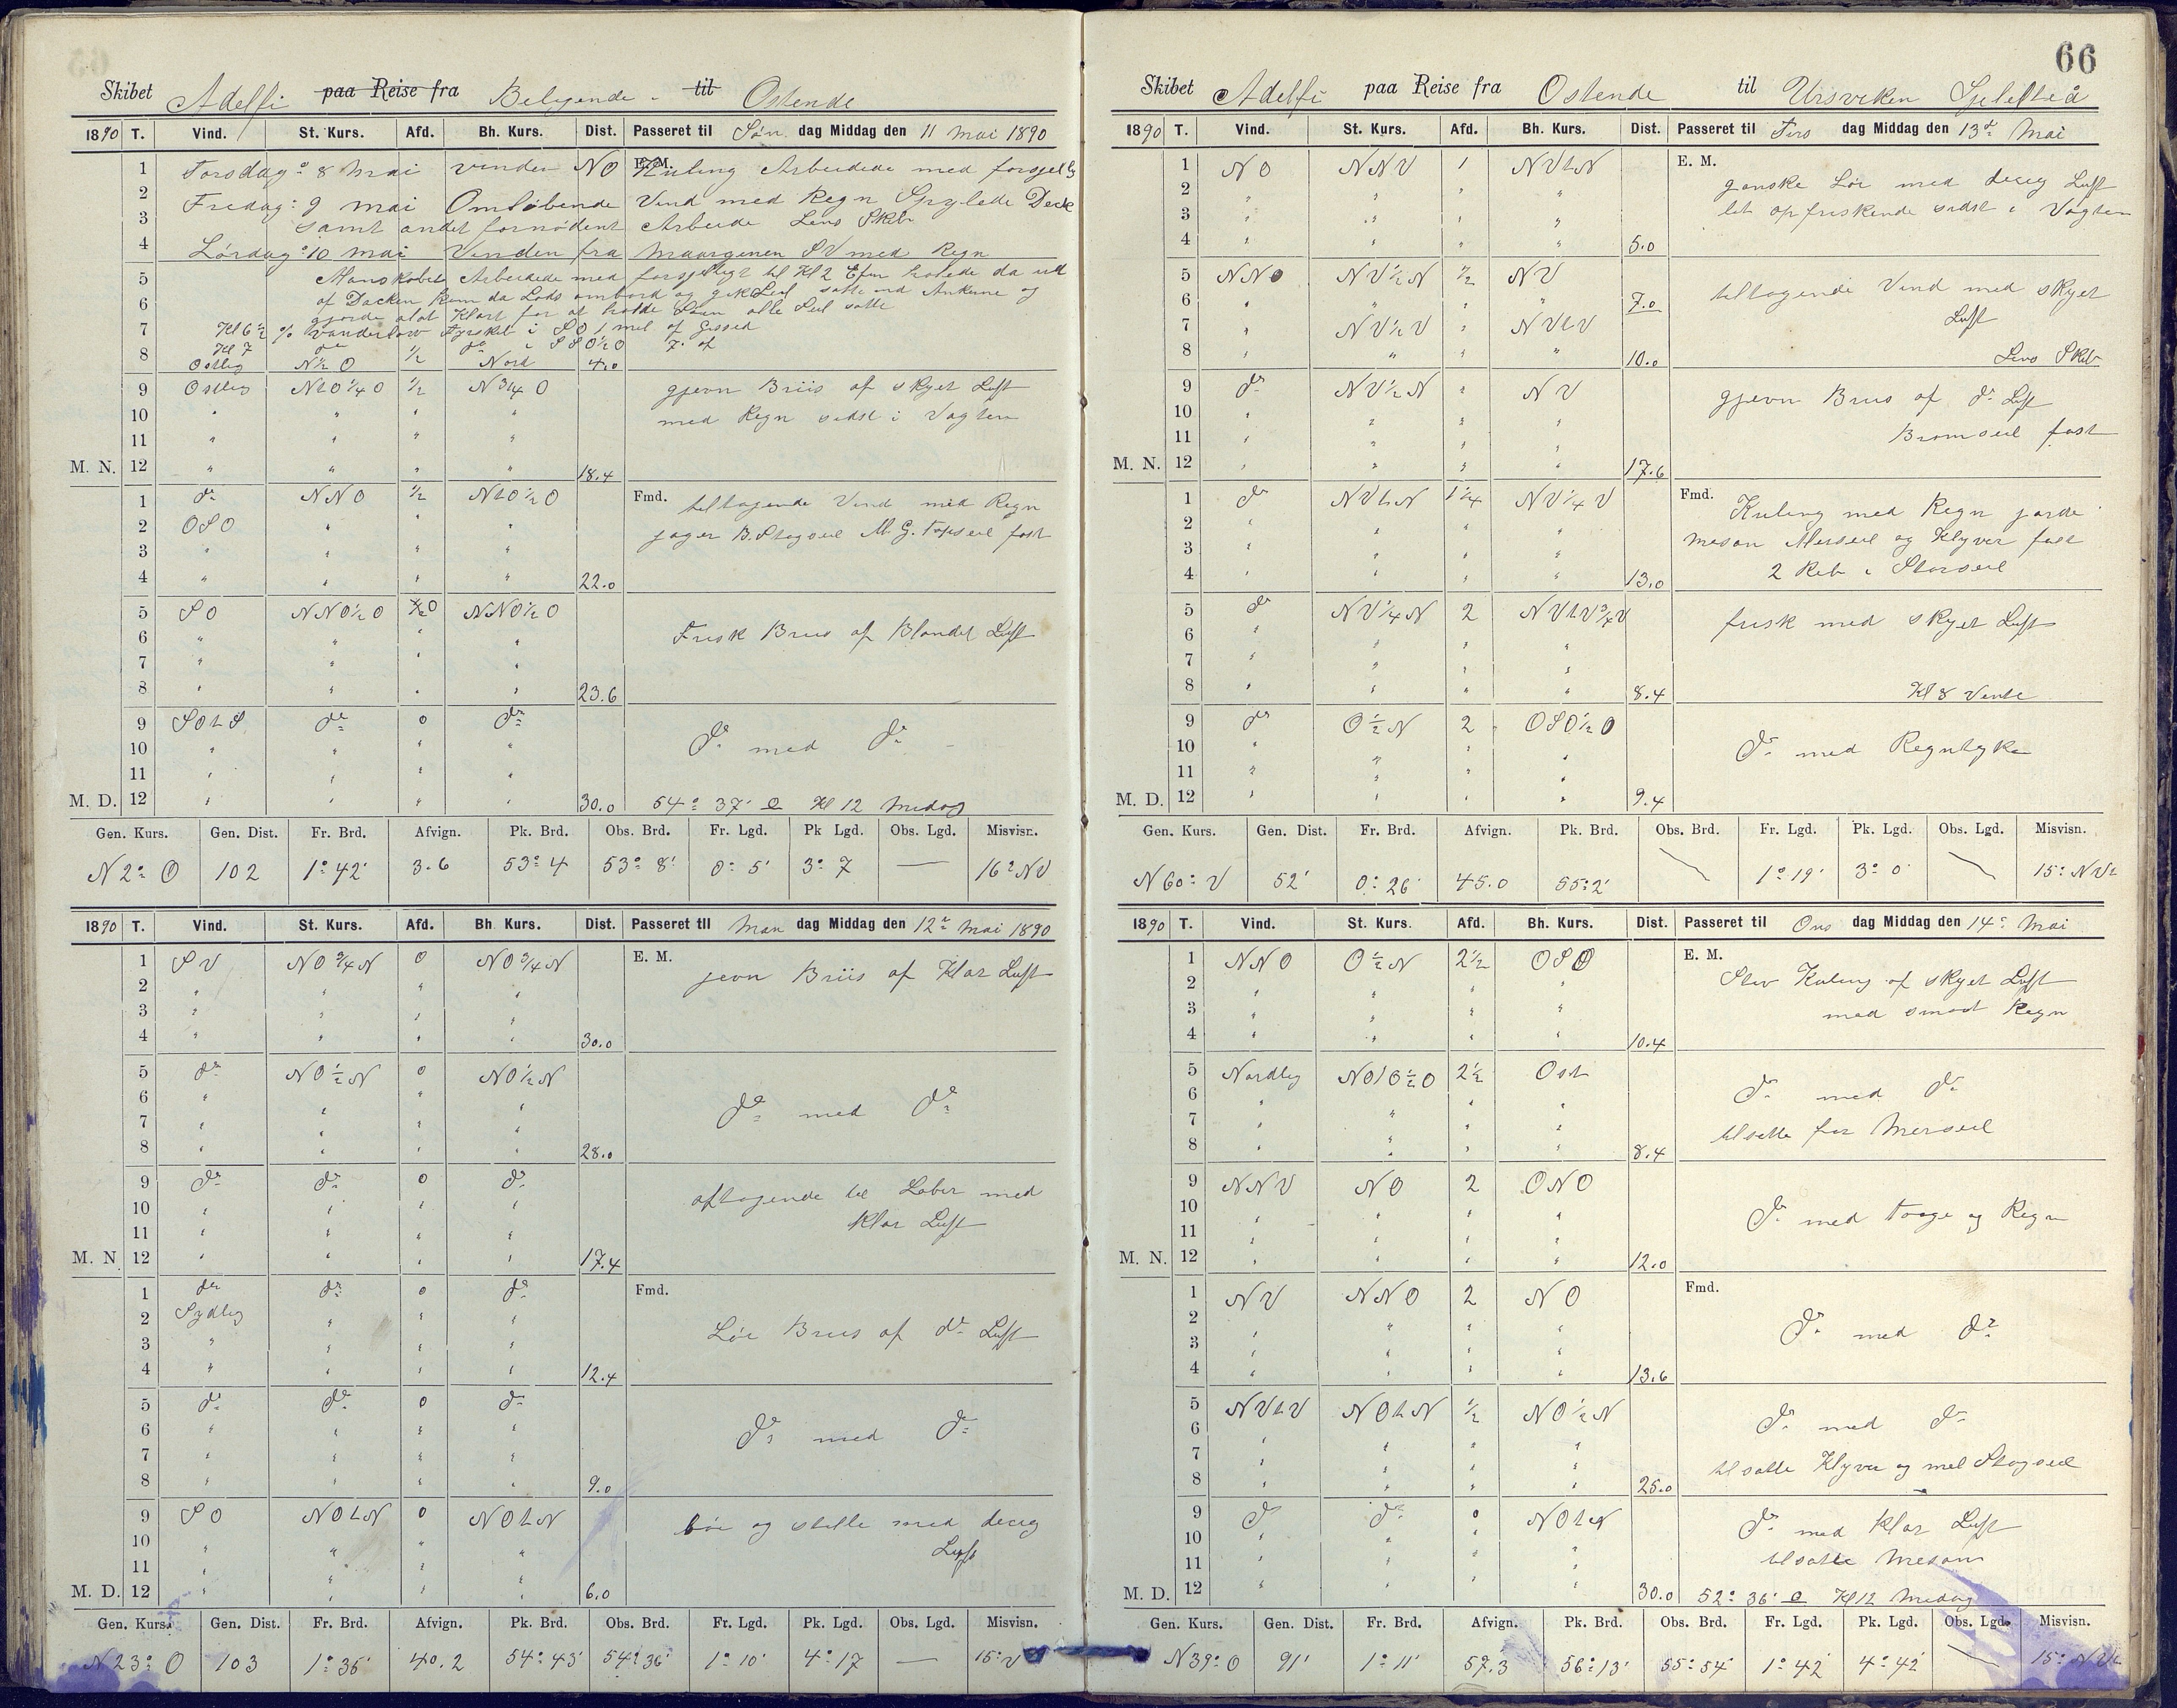 Skibet Adelfi paa Reise fra Belgende - til Ostende
1890 T. Vind. St. Kurs. Afd. Bh. Kurs. Dist. Passeret til Søn dag Middag den 11 Mai 1890
E. M.
1 Torsdag: 8 Mai vinden NO Kuling Arbeidede med forsjellig
2 Fredag: 9 Mai Omløbende Vind med Regn Spylede Deck
3 samt andet fornødent Arbeide Lens Skib
4 Lørdag: 10 Mai Vinden fra Maargenen SV med Regn
5 Manskabet Arbeidede med forsjelligt til Kl 2 Efm halede da ud
6 af Docken kom da Lods ombord og gik Seil satte
gjorde alat Klart for at holde Søen alle Seil satte
7 Kl 6½ Fyrskib i SO 1 mil af Gissed
8 Kl 7 i SSO½O 7' af
Ostlig N½O ½ Nord 4.0
9 Ostlig NtO¼O ½ N¾O gjevn Briis af skyet Luft
10 " " " " med Regn sidst i Vagten
11 " " " "
M. N. 12 " " " " 18.4
1 do NNO ½ NtO½O Fmd. tiltagende Vind med Regn
2 OSO " " " jager B. Stagseil M. G. Topseil fast
3 " " " "
4 " " " " 22.0
5 SO NNO½O 0 NNO½O
6 " " " " Frisk Briis af Blandet Luft
7 " " " "
8 " " " " 23.6
9 SOtS do 0 do
10 " " " " do med do
11 " " " "
M. D. 12 " " " " 30.0 54° 37' Kl 12 Middag
Gen. Kurs. Gen. Dist. Fr. Brd. Afvign. Pk. Brd. Obs. Brd. Fr. Lgd. Pk Lgd. Obs. Lgd. Misvisn.
N 2° O 102 1° 42' 3.6 53° 4 53° 8' 0° 5' 3° 7 — 16° NV
1890 T. Vind. St. Kurs. Afd. Bh. Kurs. Dist. Passeret til Man dag Middag den 12te Mai 1890
1 SV NO¾N 0 NO¾N E. M. jevn Briis af Klar Luft
2 " " " "
3 " " " "
4 " " " " 30.0
5 do NO½N 0 NO½N
6 " " " " do med do
7 " " " "
8 " " " " 28.0
9 do do 0 do aftagende til Laber med
10 " " " " Klar Luft
11 " " " "
M. N. 12 " " " " 17.4
1 do do 0 do Fmd.
2 Sydlig " " " Løi Briis af do Luft
3 " " " "
4 " " " " 12.4
5 do do 0 do
6 " " " " do med do
7 " " " "
8 " " " " 9.0
9 SO NOtN 0 NOtN Løi og stille med diseg
10 " " " " Luft
11 " " " "
M. D. 12 " " " " 6.0
Gen. Kurs. Gen. Dist. Fr. Brd. Afvign. Pk. Brd. Obs. Brd. Fr. Lgd. Pk. Lgd. Obs. Lgd. Misvisn.
N 23° O 103 1° 35' 40.2 54° 43' 54° 36' 1° 10' 4° 17 — 15° V
66
Skibet Adelfi paa Reise fra Ostende til Ursviken Sjelefteå
1890 T. Vind. St. Kurs. Afd. Bh. Kurs. Dist. Passeret til Tirs dag Middag den 13de Mai
1 NO NNV 1 NVtN E. M. ganske Løi med diseg Luft
2 " " " " let opfriskende sidst i Vagten
3 " " " "
4 " " " " 5.0
5 NNO NV½N ½ NV tiltagende Vind med skyet
6 " " " " 7.0 Luft
7 " NV½V " NVtV
8 " " " " 10.0 Lens Skib
9 do NV½N " NV gjevn Briis af do Luft
10 " " " " Bramseil fast
11 " " " "
M. N. 12 " " " " 17.6
1 do NVtN 1¼ NV¼V Fmd. Kuling med Regn jorde
2 " " " " mesan Merseil og Klyver fast
3 " " " " 2 Reb i Storseil
4 " " " " 13.0
5 do NV¼N 2 NVtV¾V frisk med skyet Luft
6 " " " "
7 " " " "
8 " " " " 8.4 Kl 8 Vente
9 do O½N 2 OSO½O
10 " " " " do med Regntyke
11 " " " "
M. D. 12 " " " " 9.4
Gen. Kurs. Gen. Dist. Fr. Brd. Afvign. Pk. Brd. Obs. Brd. Fr. Lgd. Pk. Lgd. Obs. Lgd. Misvisn.
N 60° V 52' 0° 26' 45.0 55° 2' 1° 19' 3° 0' 15° NVt
1890 T. Vind. St. Kurs. Afd. Bh. Kurs. Dist. Passeret til Ons dag Middag den 14de Mai
1 NNO O½N 2½ OSO E. M. Stiv Kuling af skyet Luft
2 " " " " med smaat Regn
3 " " " "
4 " " " " 10.4
5 Nordlig NOtO½O 2½ Ost do med do
6 " " " " tilsatte for Merseil
7 " " " "
8 " " " " 8.4
9 NNV NO 2 ONO
10 " " " " do med Taage og Regn
11 " " " "
M. N. 12 " " " " 12.0
1 NV NNO 2 NO Fmd.
2 " " " " do med do
3 " " " "
4 " " " " 13.6
5 NVtV NOtN ½ NO½N do med do
6 " " " " tilsatte Klyver og mel Stagseil
7 " " " "
8 " " " " 25.0
9 do do 0 NOtN do med Klar Luft
10 " " " " tilsatte Mesan
11 " " " "
M. D. 12 " " " " 30.0 52° 36' Kl 12 Middag
Gen. Kurs. Gen. Dist. Fr. Brd. Afvign. Pk. Brd. Obs. Brd. Fr. Lgd. Pk. Lgd. Obs. Lgd. Misvisn.
N 39° O 91' 1° 11' 57.3 56° 13' 55° 54' 1° 42' 4° 42' 15° NVt